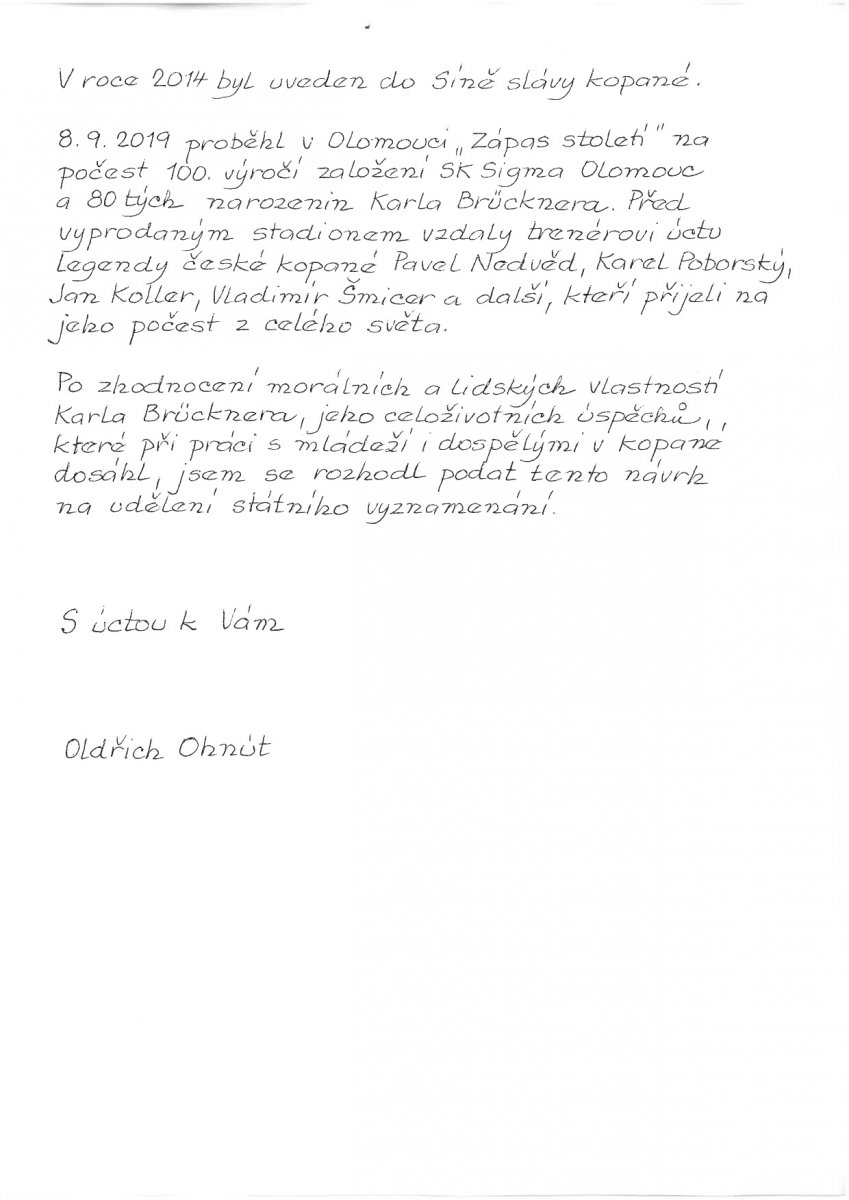 V roce 2014 byl uveden do Síně slávy kopané.
8. 9. 2019 proběhl v Olomouci „Zápas století" na
počest 100. výročí založení SK Sigma Olomouc
a 80 tých narozenin Karla Brücknera. Před
vyprodaným stadionem vzdaly trenérovi úctu
legendy české kopané Pavel Nedvěd, Karel Poborský,
Jan Koller, Vladimír Šmicer a další, kteří přijeli na
jeho počest z celého světa.
Po zhodnocení morálních a lidských vlastností
Karla Brücknera, jeho celoživotních úspěchů, ,
které při práci s mládeží i dospělými v kopané
dosáhl, jsem se rozhodl podat tento návrh
na udělení státního vyznamenání.
S úctou k Vám
Oldřich Ohnút